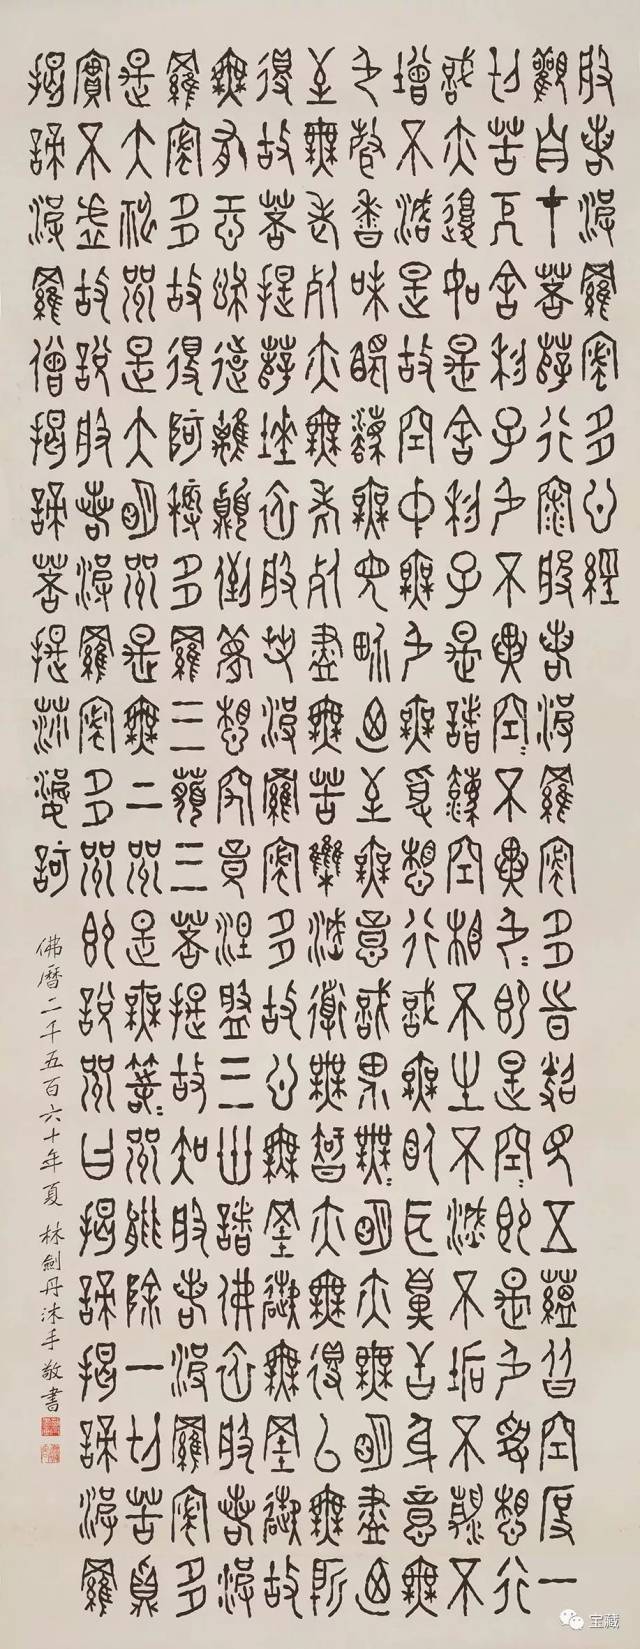 般若波羅蜜多心經
觀自在菩薩行深般若波羅蜜多時照見五蘊皆空度一
切苦厄舍利子色不異空〻不異色〻即是空〻即是色受想行
識亦復如是舍利子是諸法空相不生不滅不垢不淨不
增不減是故空中無色無受想行識無眼耳鼻舌身意無
色聲香味觸法無眼界乃至無意識界無〻明亦無無明盡乃
至無老死亦無老死盡無苦集滅道無智亦無得以無所
得故菩提薩埵依般若波羅蜜多故心無罣礙無罣礙故
無有恐怖遠離顛倒夢想究竟涅槃三世諸佛依般若波
羅蜜多故得阿耨多羅三藐三菩提故知般若波羅蜜多
是大神咒是大明咒是無上咒是無等〻咒能除一切苦真
實不虛故說般若波羅蜜多咒即說咒曰揭諦揭諦波羅
揭諦波羅僧揭諦菩提莎婆訶
佛曆二千五百六十年夏 林劍丹沐手敬書
宝藏